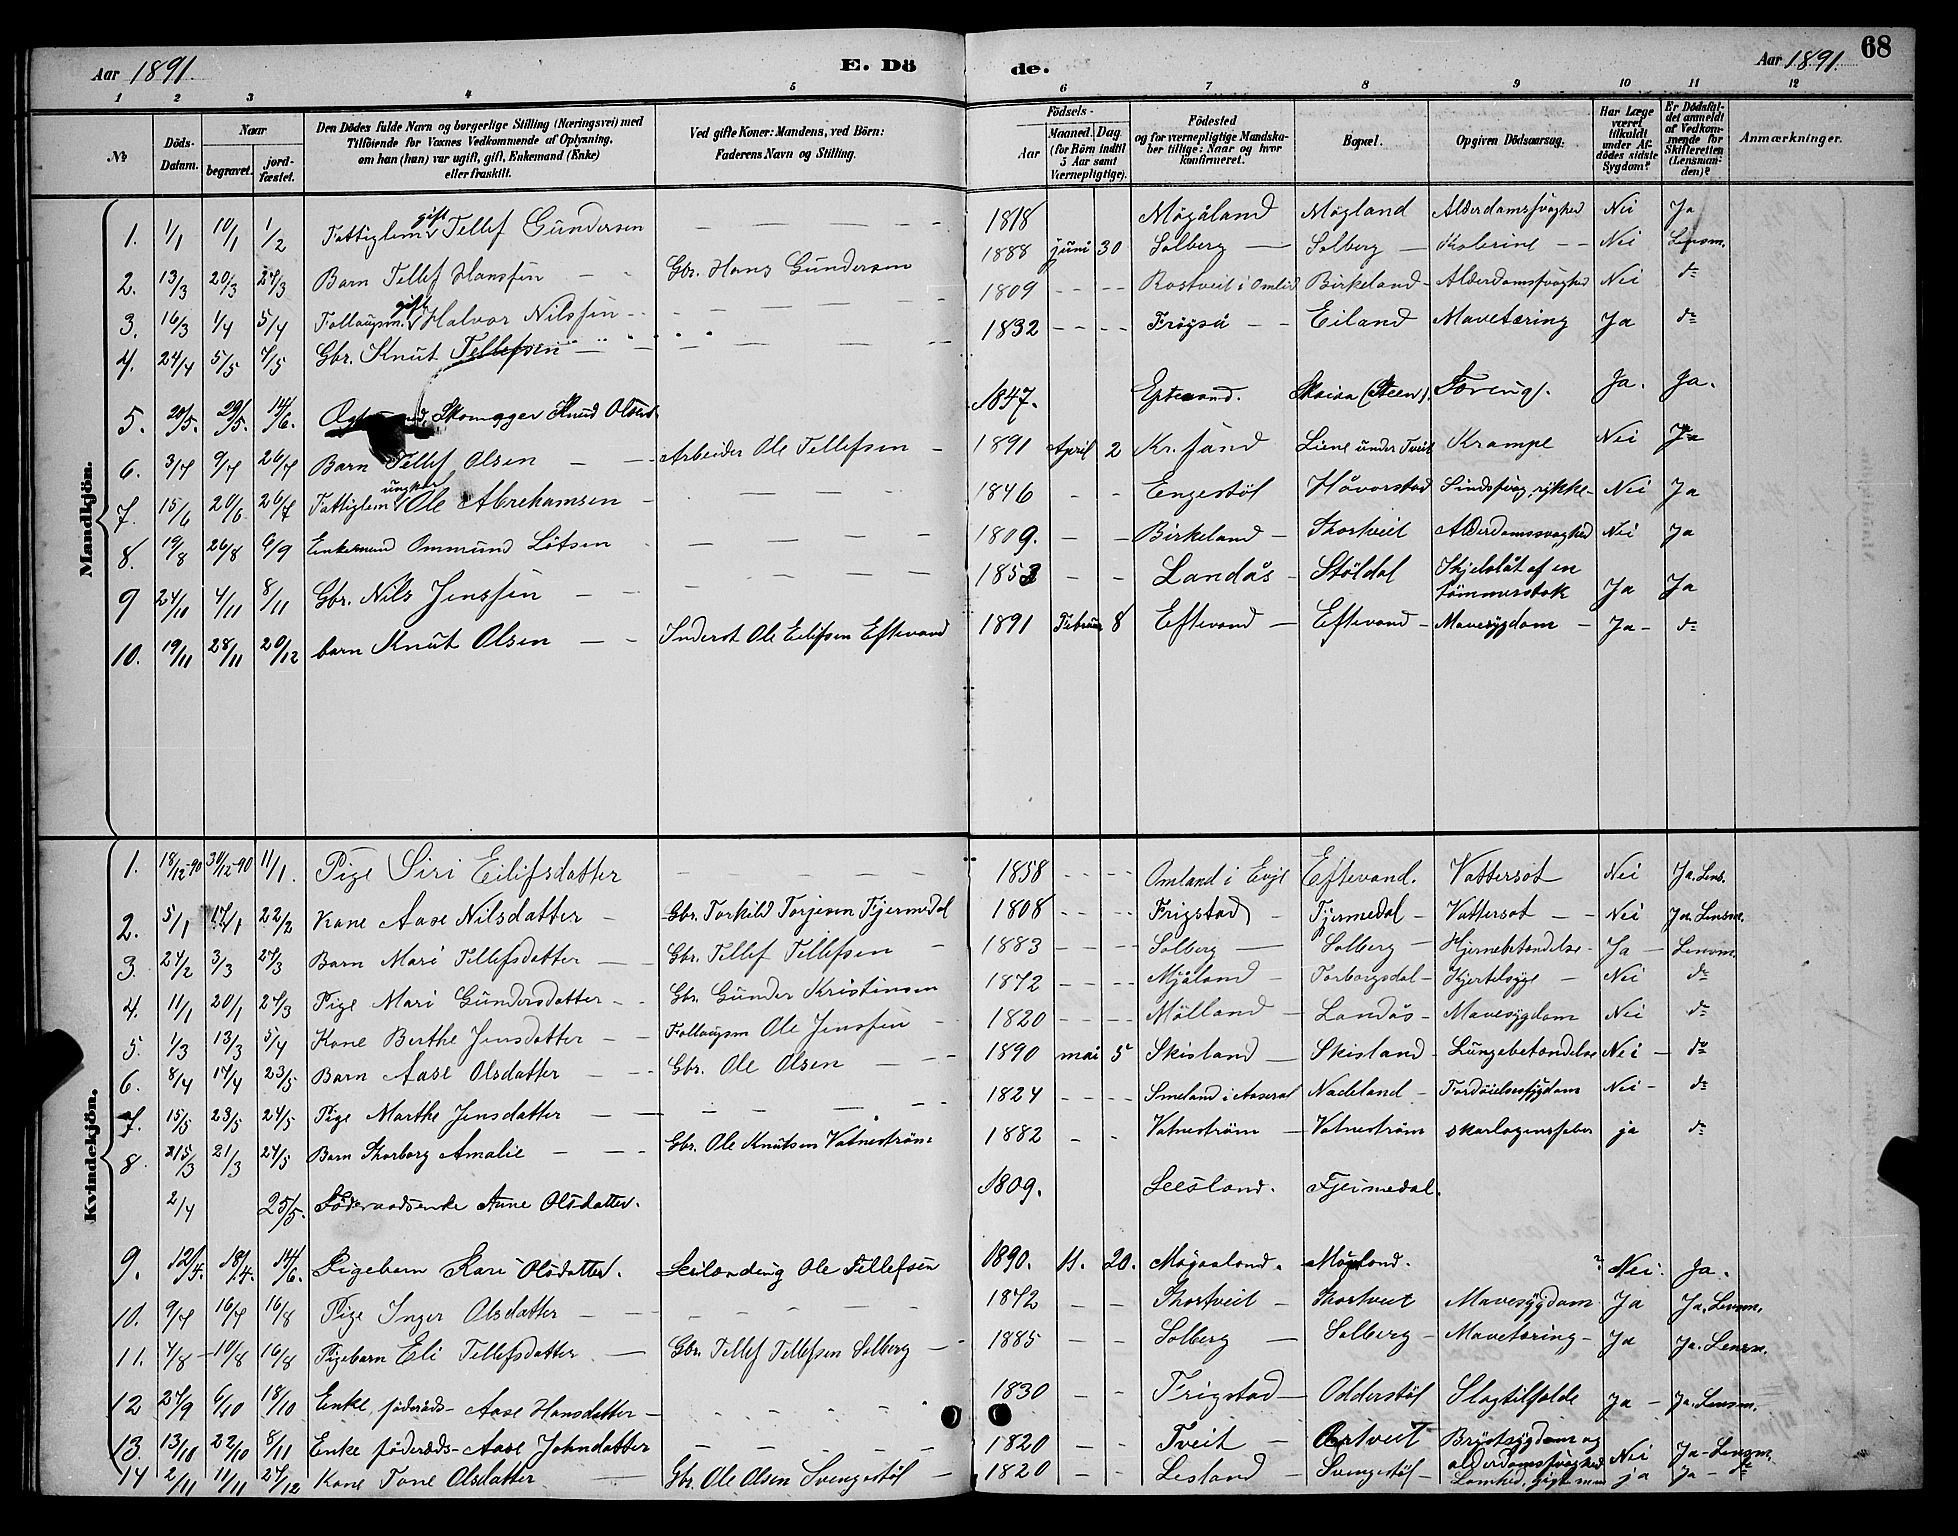 Aar 1891. E. Dö de. Aar 1891. 68
1 2 3 4 5 6 7 8 9 10 11 12
№ Döds-Datum. Naar begravet. jord-fæstet. Den Dödes fulde Navn og borgerlige Stilling (Næringsvei) med Tilföiende for Voxnes Vedkommende af Oplysning, om han (hun) var ugift, gift, Enkemand (Enke) eller fraskilt. Ved gifte Koner: Mandens, ved Börn: Faderens Navn og Stilling. Födsels- Aar Maaned. Dag (for Börn indtil 5 Aar samt Værnepligtige). Födested og for værnepligtige Mandskaber tillige: Naar og hvor konfirmeret. Bopæl. Opgiven Dödsaarsag. Har Læge været tilkaldt under Afdödes sidste Sygdom? Er Dödsfaldet anmeldt af Vedkommende for Skifteretten (Lensmanden)? Anmærkninger.
Mandkjön.
1. 1/1 10/1 1/2 Fattiglem gift Tellef Gundersen — 1818 Mögåland Mögland Alderdomssvaghed Nei Ja Lensm.
2. 13/3 20/3 27/3 Barn Tellef Hanssen — Gbr. Hans Gundersen 1888 juni 30 Solberg — Solberg — Kolerine — Nei d=
3. 16/3 1/4 5/4 gift Halvor Nilssen — 1809 Rostveit i Omlid Birkeland — Alderdomssvaghed Nei
4. 24/4 5/5 7/5 Gbr. Knut Tellefsen — 1832 Frögså — Eiland Mavetæring Ja d=
5. 20/5. 29/5. 14/6. Skomager Knud Olsen 1847. Eptevand. (Steen). Ja. Ja.
6. 3/7 9/7 26/7 Barn Tellef Olsen — Arbeider Ole Tellefsen — 1891 April 2 Kr.sand Liene under Tveit Krampe Nei Ja
7. 15/6 20/6 26/7 Fattiglem ungkar Ole Abrehamsen — 1846 Engestöl Håvorstad Nei Ja
8. 19/8 26/8 6/9 Enkemand Ommund Lötsen — 1809. Birkeland — Thortveit Alderdomssvaghed Nei Ja
9 24/10 4/11 8/11 Gbr. Nils Jenssen — 1853 Landås — Stöldal Ihjelslåt af en tömmerstok Ja Ja
10. 19/11 28/11 20/12 barn Knut Olsen — Inderst Ole Eilifsen Eftevand 1891 Februar 8 Eftevand — Eftevand — Mavesygdom — Ja — d=
Kvindekjön.
1. 18/12-90 30/12-90 11/1. Pige Siri Eilifsdatter 1858 Omland i Evje Eftevand. Vattersot Nei Ja. Lens.
2. 5/1 17/1 22/2 Kone Aase Nilsdatter — Gbr. Torkild Torjesen Fjermedal 1808 Frigstad — Fjermedal — Vattersot — Nei Ja. Lensm.
3. 24/2 3/3 27/3 Barn Mari Tellefsdatter — Gbr. Tellef Tellefsen — 1883 Solberg — Solberg — Hjernebetændelse — Ja — Lensm.
4. 11/1 20/1 27/3 Pige Mari Gundersdatter — Gbr. Gunder Kristinsen 1872 Mjåland — Torborgsdal — Kjertelsyge — Nei d=
5. 1/3 13/3 5/4 Kone Berthe Jensdatter — Ole Jenssen — 1820 Mölland — Landås — Mavesygdom Nei d=
6. 8/4 17/4 23/5 Barn Aase Olsdatter — Gbr. Ole Olsen — 1890 mai 5 Skisland — Skisland — Lungebetændelse Nei — d=
7. 15/5 23/5 24/5 Pige Marthe Jensdatter — 1824 Smeland i Aaseral Nadeland — Fordöielsessygdom Nei — d=
8. 15/3 21/3 24/5 Barn Thorborg Amalie — Gbr. Ole Knutsen Vatneström 1882 Vatneström — Vatneström skarlagensfeber ja d=
2/4 25/5. Föderaadsenke Anne Olsdatter. 1809. Leesland. Fjermedal.
9. 12/4. 18/4. 14/6. Pigebarn Kari Olsdatter. Ole Tellefsen 1890. 11. 20. Möjaaland. Möjland. ? Nei. Ja.
10. 9/7 16/7 16/8 Pige Inger Olsdatter — 1872 Thortveit — Thortveit Mavesygdom Ja Ja. Lensm.
11. 7/8 10/8 16/8 Pigebarn Eli Tellefsdatter — Gbr. Tellef Tellefsen Solberg — 1885 Solberg — Solberg — Mavetæring — Ja Ja. Lensm.
12 27/9 6/10 18/10 Enke föderåds- Aase Hansdatter — 1830 Frigstad — Odderstöl Slagtilfælde Ja — Ja. Lensm.
13. 13/10 22/10 8/11 Enke föderåds- Aase Johndatter — 1820 Tveit — Brystsygdom og alderdomssvaghed Nei Ja — Lensm.
14 2/11 11/11 27/12 Kone Tone Olsdatter — Gbr. Ole Olsen Svengestöl — 1820 Lesland — Svengestöl — Lamhed, gigt ja ja — d=